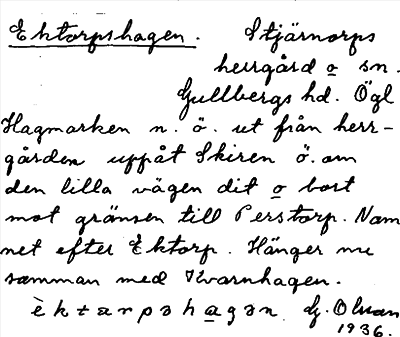 Ektorpshagen. Stjärnorps
herrgård o sn.
Gullbergs hd. Ögl
Hagmarken n. ö. ut från herr-
gården uppåt Skiren ö. om
den lilla vägen dit o bort
mot gränsen till Perstorp. Nam
net efter Ektorp. Hänger nu
samman med Kvarnhagen.
èktarpshagən. G. Olson
1936.